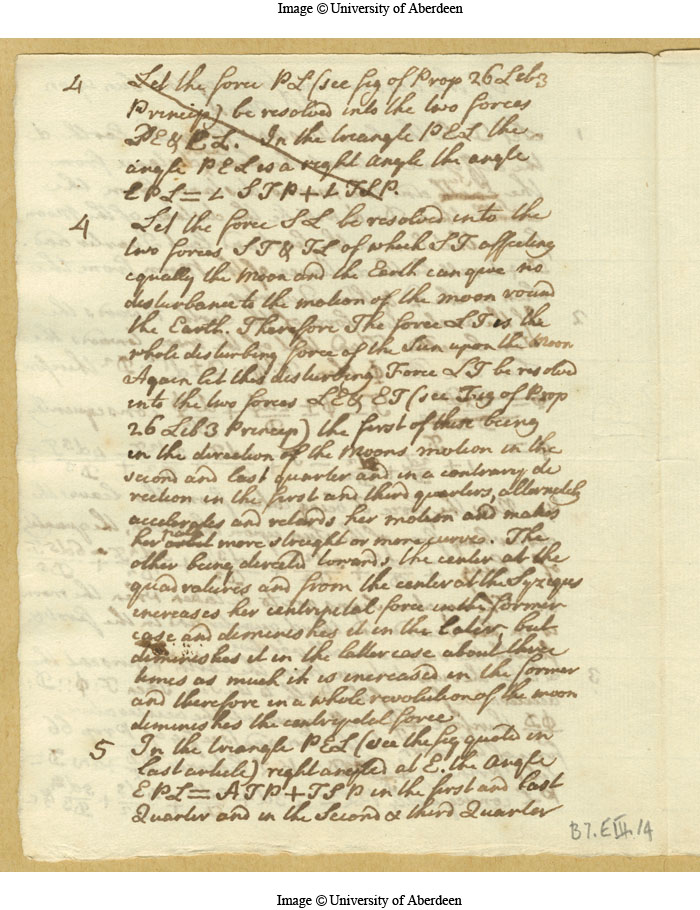 Image © University of Aberdeen
4 Let the force PL (see fig of Prop 26 Lib 3
Princip) be resolved into the two forces
PE & EL. In the triangle PEL the
angle PEL is a right angle the angle
EPL = L STP + L TSP.
4 Let the force SL be resolved into the
two forces ST & TL of which ST affecting
equally the Moon and the Earth can give no
disturbance to the motion of the moon round
the Earth. Therefore The force LT is the
whole disturbing force of the Sun upon the Moon
Again let this disturbing Force LT be resolved
into the two forces LE & ET (see Fig of Prop
26 Lib 3 Princip) the first of these being
in the direction of the Moons motion in the
second and last quarter and in a contrary di
rection in the first and third quarters, alternately
accelerates and retards her motion and makes
her more streight or more curve. The
other being directed towards the center at the
quadratures and from the center at the Syziges
increases her centripetal force in the former
case and diminishes it in the later, but
diminishes it in the latter case about three
times as much as it is increased in the former
and therefore in a whole revolution of the moon
diminishes the centripetal force
5 In the triangle PEL (see the fig quoted in
last article) right angled at E. the angle
EPL = ATP + TSP in the first and last
Quarter and in the Second & third Quarter
B7.EIII./4
Image © University of Aberdeen